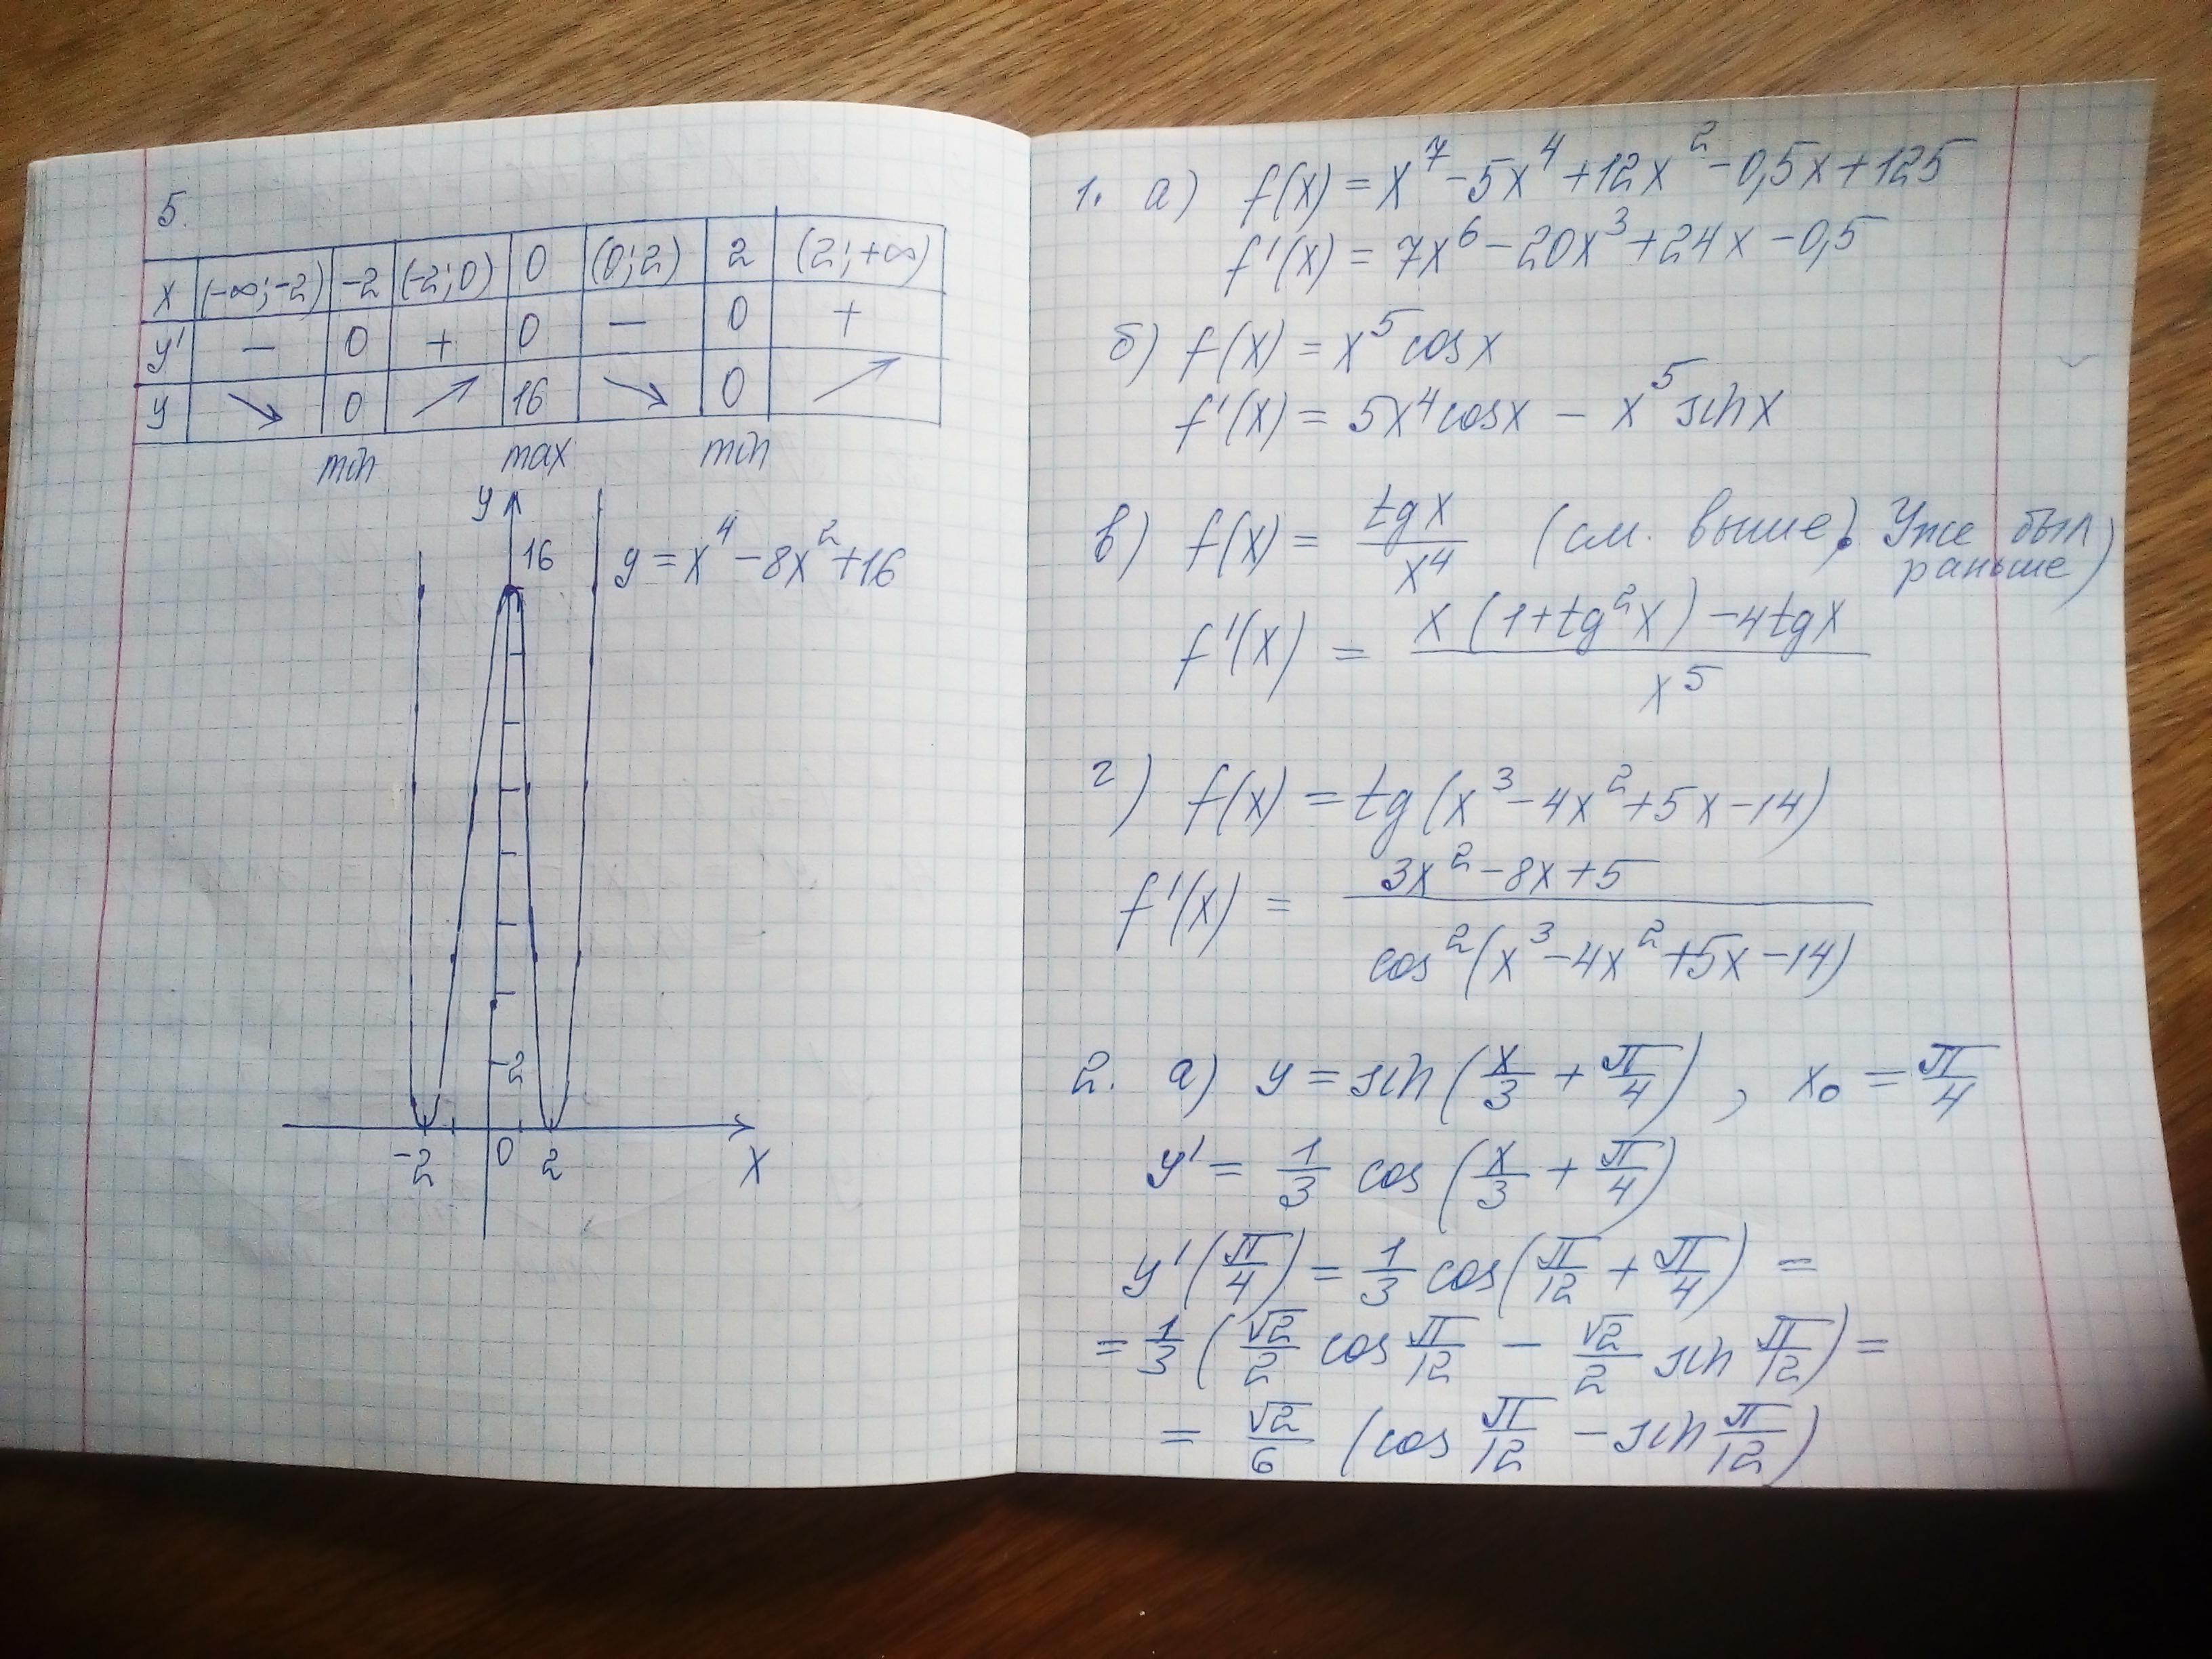 5.
x | (-∞; -2) | -2 | (-2; 0) | 0 | (0; 2) | 2 | (2; +∞)
y' | − | 0 | + | 0 | − | 0 | +
y | ↘ | 0 | ↗ | 16 | ↘ | 0 | ↗
min max min
y
16 y = x⁴ − 8x² + 16
2
-2 0 2 x
1. а) f(x) = x⁷ − 5x⁴ + 12x² − 0,5x + 125
f'(x) = 7x⁶ − 20x³ + 24x − 0,5
б) f(x) = x⁵ cos x
f'(x) = 5x⁴ cos x − x⁵ sin x
в) f(x) = tg x / x⁴ (см. выше). Уже был
раньше)
f'(x) = (x(1 + tg² x) − 4 tg x) / x⁵
г) f(x) = tg(x³ − 4x² + 5x − 14)
f'(x) = (3x² − 8x + 5) / cos²(x³ − 4x² + 5x − 14)
2. а) y = sin(x/3 + π/4), x₀ = π/4
y' = 1/3 cos(x/3 + π/4)
y'(π/4) = 1/3 cos(π/12 + π/4) =
= 1/3 (√2/2 cos π/12 − √2/2 sin π/12) =
= √2/6 (cos π/12 − sin π/12)